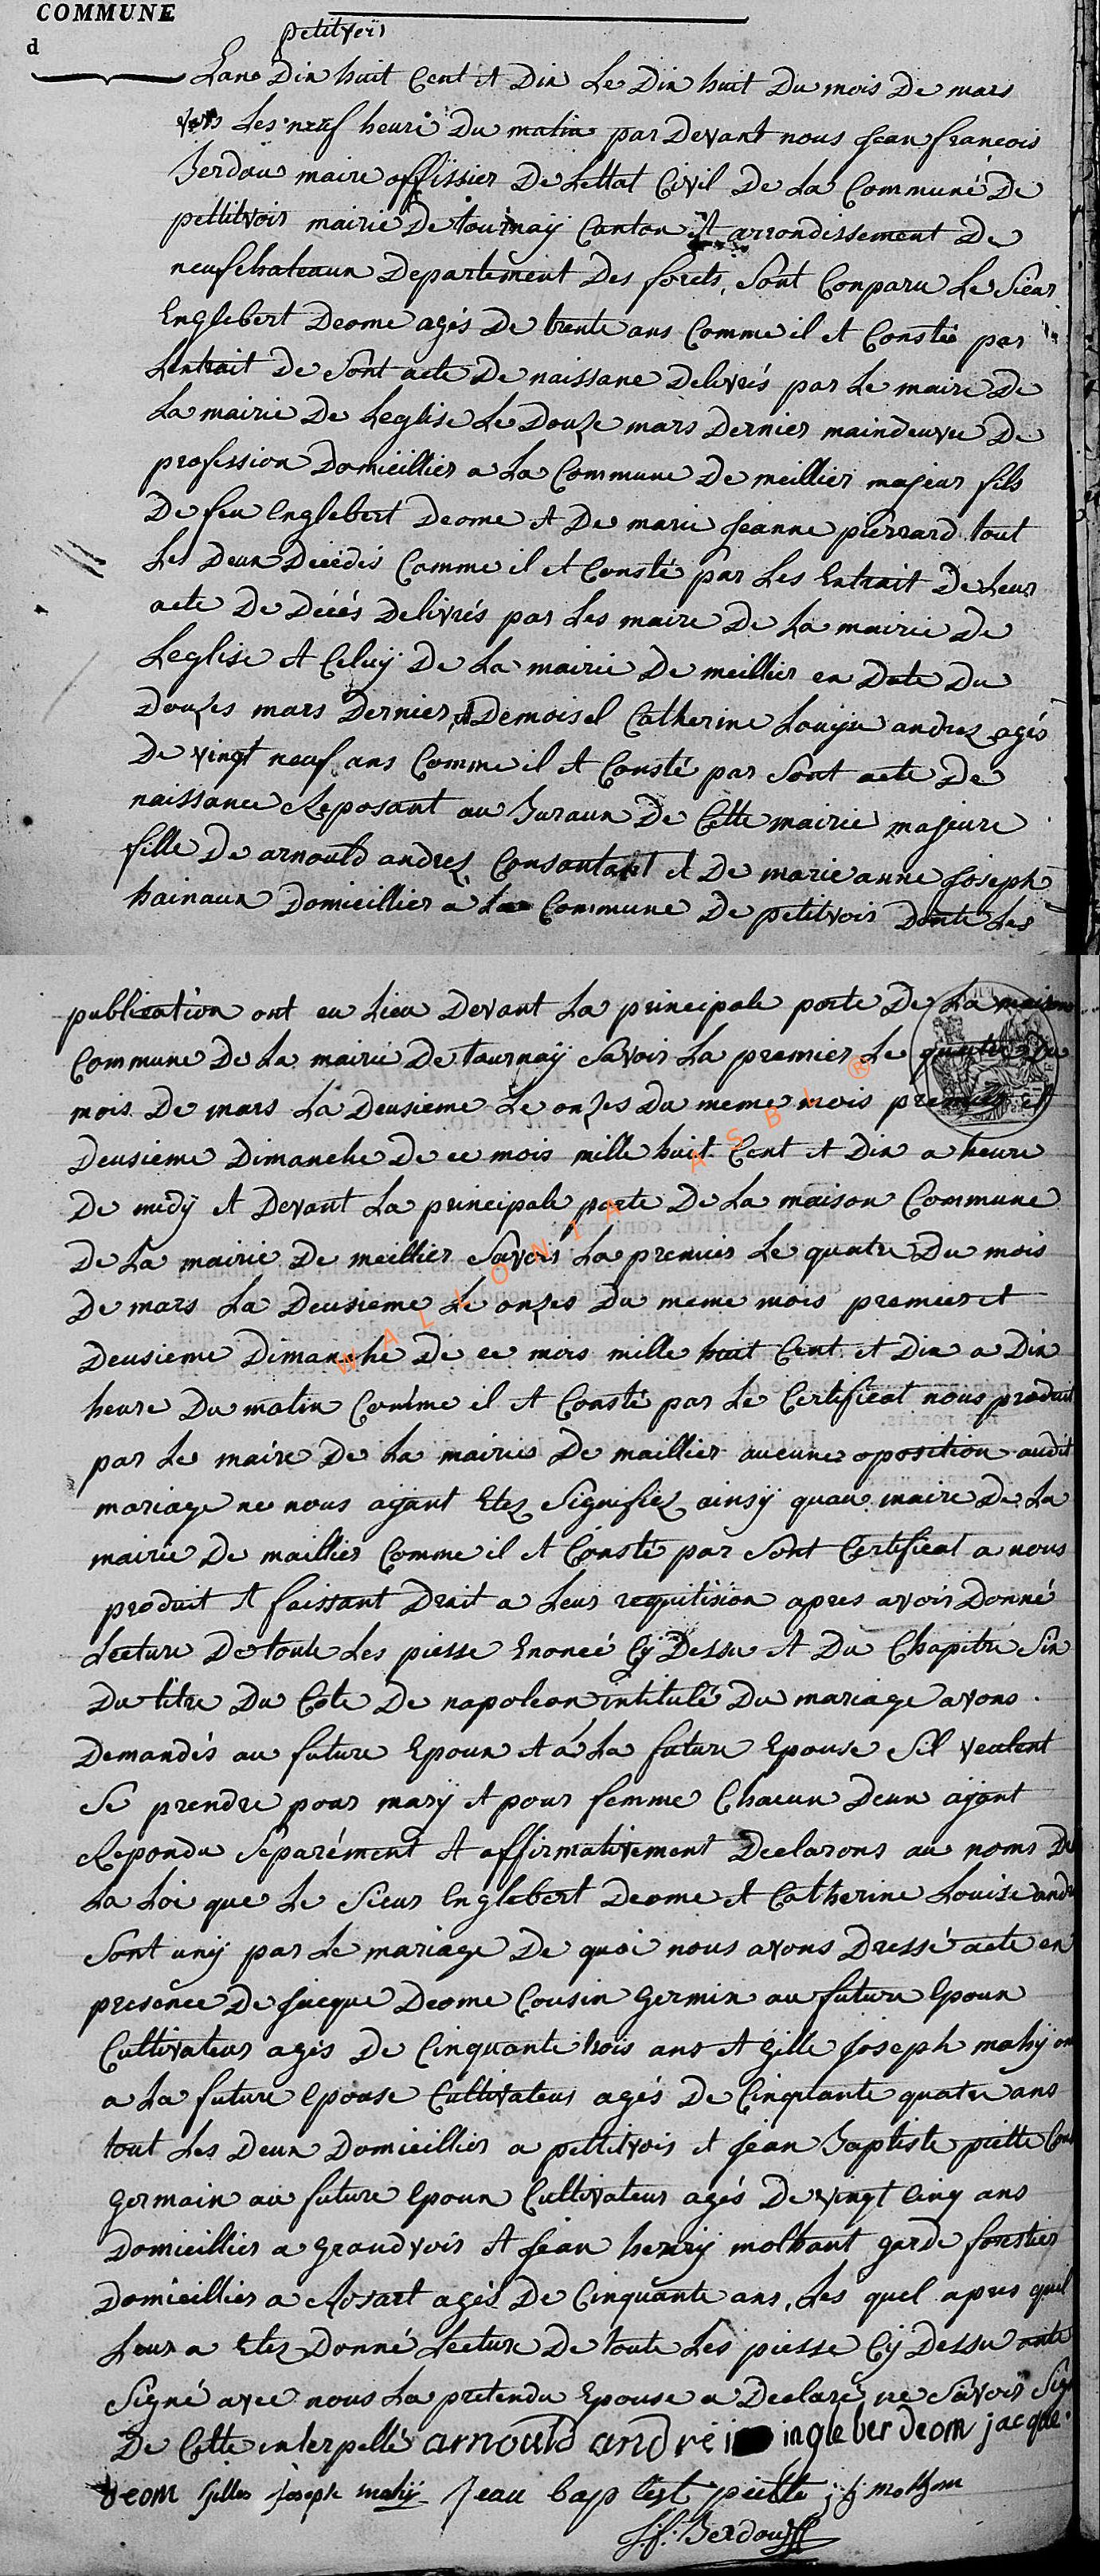 COMMUNE
d
petitvoir
Lane Dix huit Cent et Dix Le Dix huit Du mois De mars
vers Les neuf heure Du matin par Devant nous Jean françois
Berdau maire offissier De Lettat Civil De La Commune De
pettitvoir mairie De tournaÿ Canton et arrondissement De
neufchateaux Departement Des forets, Sont Conparu Le Sieur
Englebert Deome agés De trente ans Comme il et Consté par
Lextrait De Sont acte De naissane Delivrés par Le maire De
La mairie De Leglise Le Douze mars Dernier maindeuvre De
profession Domicillier a La Commune De meillier majeur fils
De feu Englebert Deome et De marie Jeanne pierrard tout
Les Deux Décédés Comme il et Consté par Les Extrait De Leur
acte De Décés Delivrés par Les maire De La mairie De
Leglise et Celuÿ De La mairie De meillier en Date Du
Douzes mars Dernier, et Demoisel Catherine Louise andrez agés
De vingt neuf ans Comme il et Consté par Sont acte De
naissance Reposant au Buraux De Cette mairie majeure
fille De arnould andrez Consantant et De marie anne Joseph
hainaux Domicillier a La Commune De petitvoir Donte Les
publication ont eu Lieu Devant La principale porte De La maison
Commune De La mairie De tournaÿ Savoir La premier Le quatre Du
mois De mars La Deusieme Le onzes Du meme mois premier et
Deusieme Dimanche De ce mois mille huit Cent et Dix a heure
De midÿ et Devant La principale porte De La maison Commune
De La mairie De meillier Savoir La premier Le quatre Du mois
De mars La Deusieme Le onzes Du meme mois premier et
Deusieme Dimanche De ce mois mille huit Cent et Dix a Dix
heure Du matin Comme il et Consté par Le Certificat nous produit
par Le maire De La mairie De maillier aucune oposition audit
mariage ne nous aÿant Etez Signifiez ainsÿ quau maire De La
mairie De maillier Comme il et Consté par Sont Certificat a nous
produit et faissant Droit a Leur requitision apres avoir Donné
Lecture De toute Les piesse Enoncé Cÿ Dessu et Du Chapitre Six
Du titre Du Cote De napoleon intitulé Du mariage avons
Demandés au future Epoux et á La future Epouse Sil veulent
Se prendre pour marÿ et pour femme Chacun Deux aÿant
Repondu Separément et affirmativement Declarons au noms De
La Loi que Le Sieur Englebert Deome et Catherine Louise andre
Sont unÿ par Le mariage De quoi nous avons Dressé acte en
presence De Jacque Deome Cousin Germin au future Epoux
Cultivateur agés De Cinquante trois ans et Gille Joseph mahÿ on
a La future Epouse Cultivateur agés De Cinquante quatre ans
tout Les Deux Domicillier a pettitvoir et Jean Baptiste piette Cou
Germain au future Epoux Cultivateur agés De vingt Cinq ans
Domicillier a Grandvoir et Jean henrÿ molhant garde forestier
Domicillier a Rosart agés De Cinquante ans, Les quel apres quil
Leur a Etez Donné Lecture De toute Les piesse Cÿ Dessu onte
Signé avec nous La pretendu Epouse a Declaré ne Savoir Sign
De Cette interpellé arnould andre ingleber deom jacque
deom Gilles Joseph mahÿ Jean bap test piette j h molhan
J.f. Berdou
WALLONIA ASBL ®